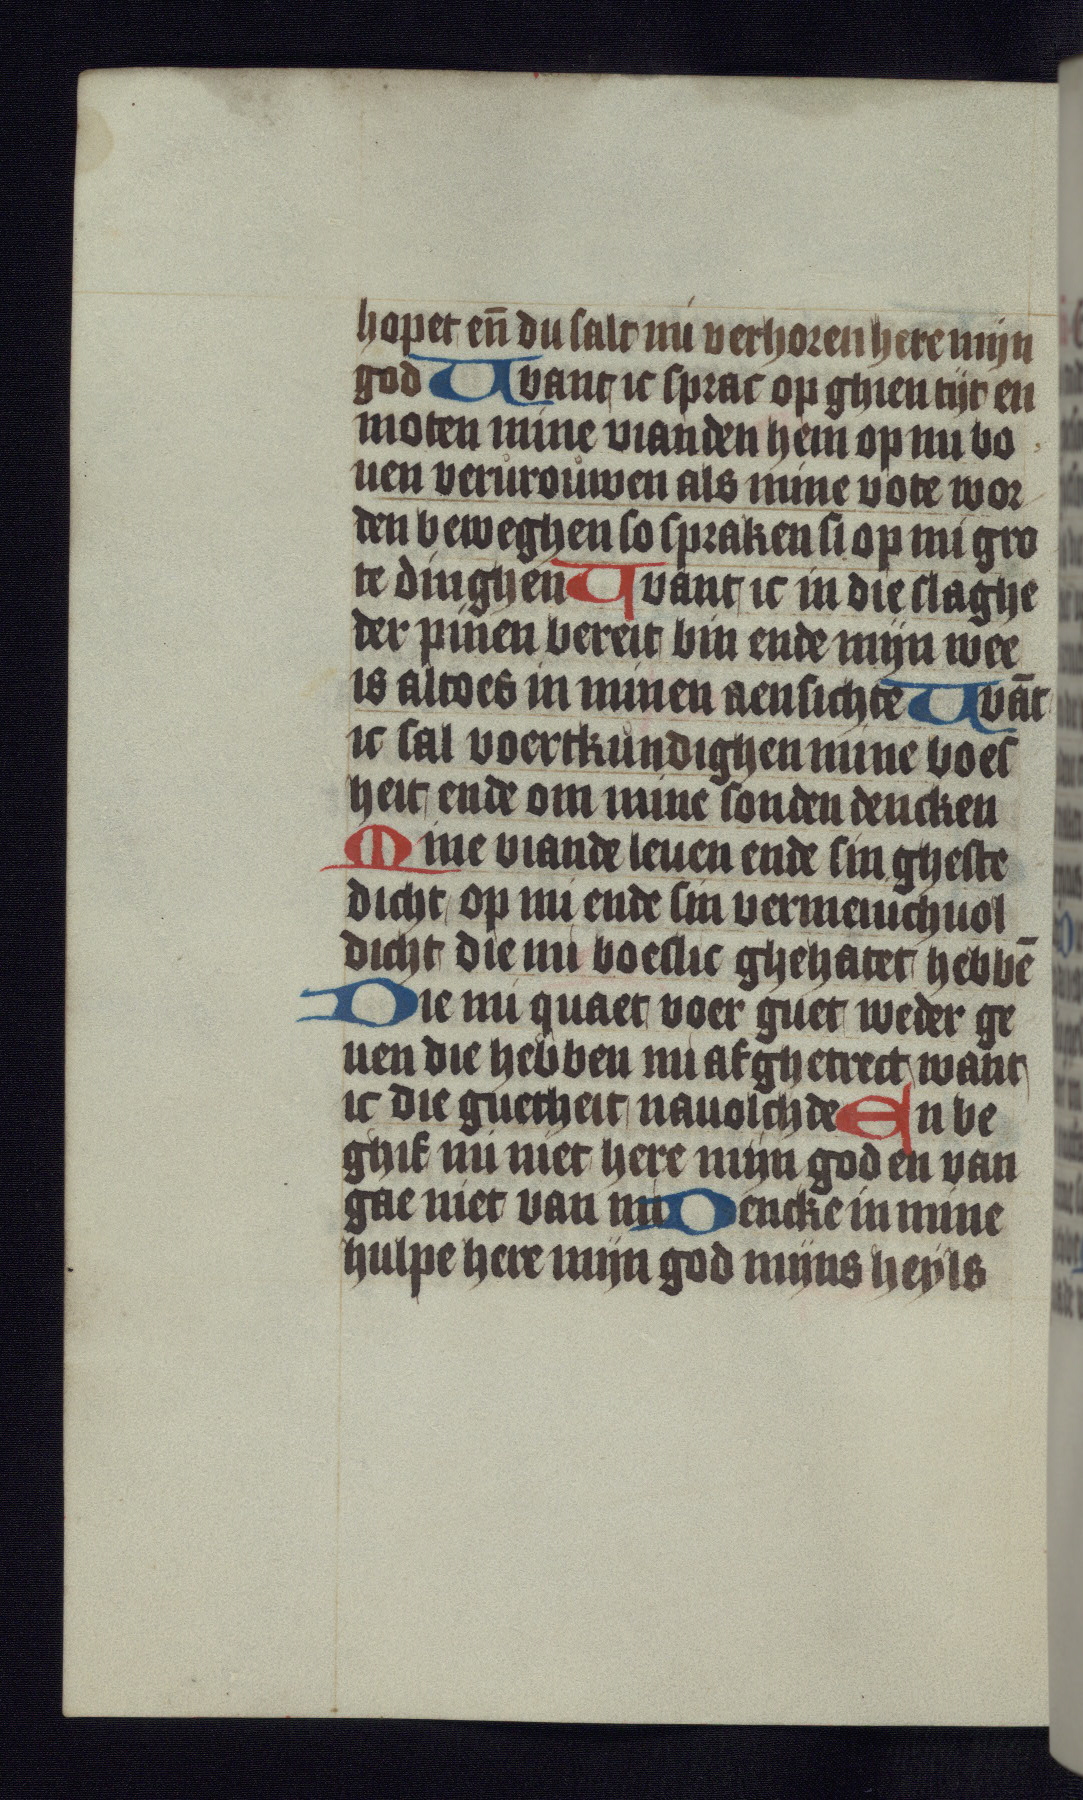 hopet en̄ du salt mi verhoren here mijn
god Uvant ic sprac op ghien tijt en
moten mine vianden hem op mi bo
uen verurouwen als mine vote wor
den beweghen so spraken si op mi gro
te dinghen Uvant ic in die slaghe
der pinen bereit bin ende mijn wee
is altoes in minen aensichte Uvāt
ic sal voertkundighen mine boes
heit ende om mine sonden dencken
Mine viande leuen ende sin gheste
dicht op mi ende sin vermenichuol
dicht die mi boeslic ghehatet hebbē
Die mi quaet voer guet weder ge
uen die hebben mi afghetrect want
ic die guetheit nauolchde En be
ghif mi niet here mijn god en van
gae niet van mi Dencke in mine
hulpe here mijn god mijns heyls